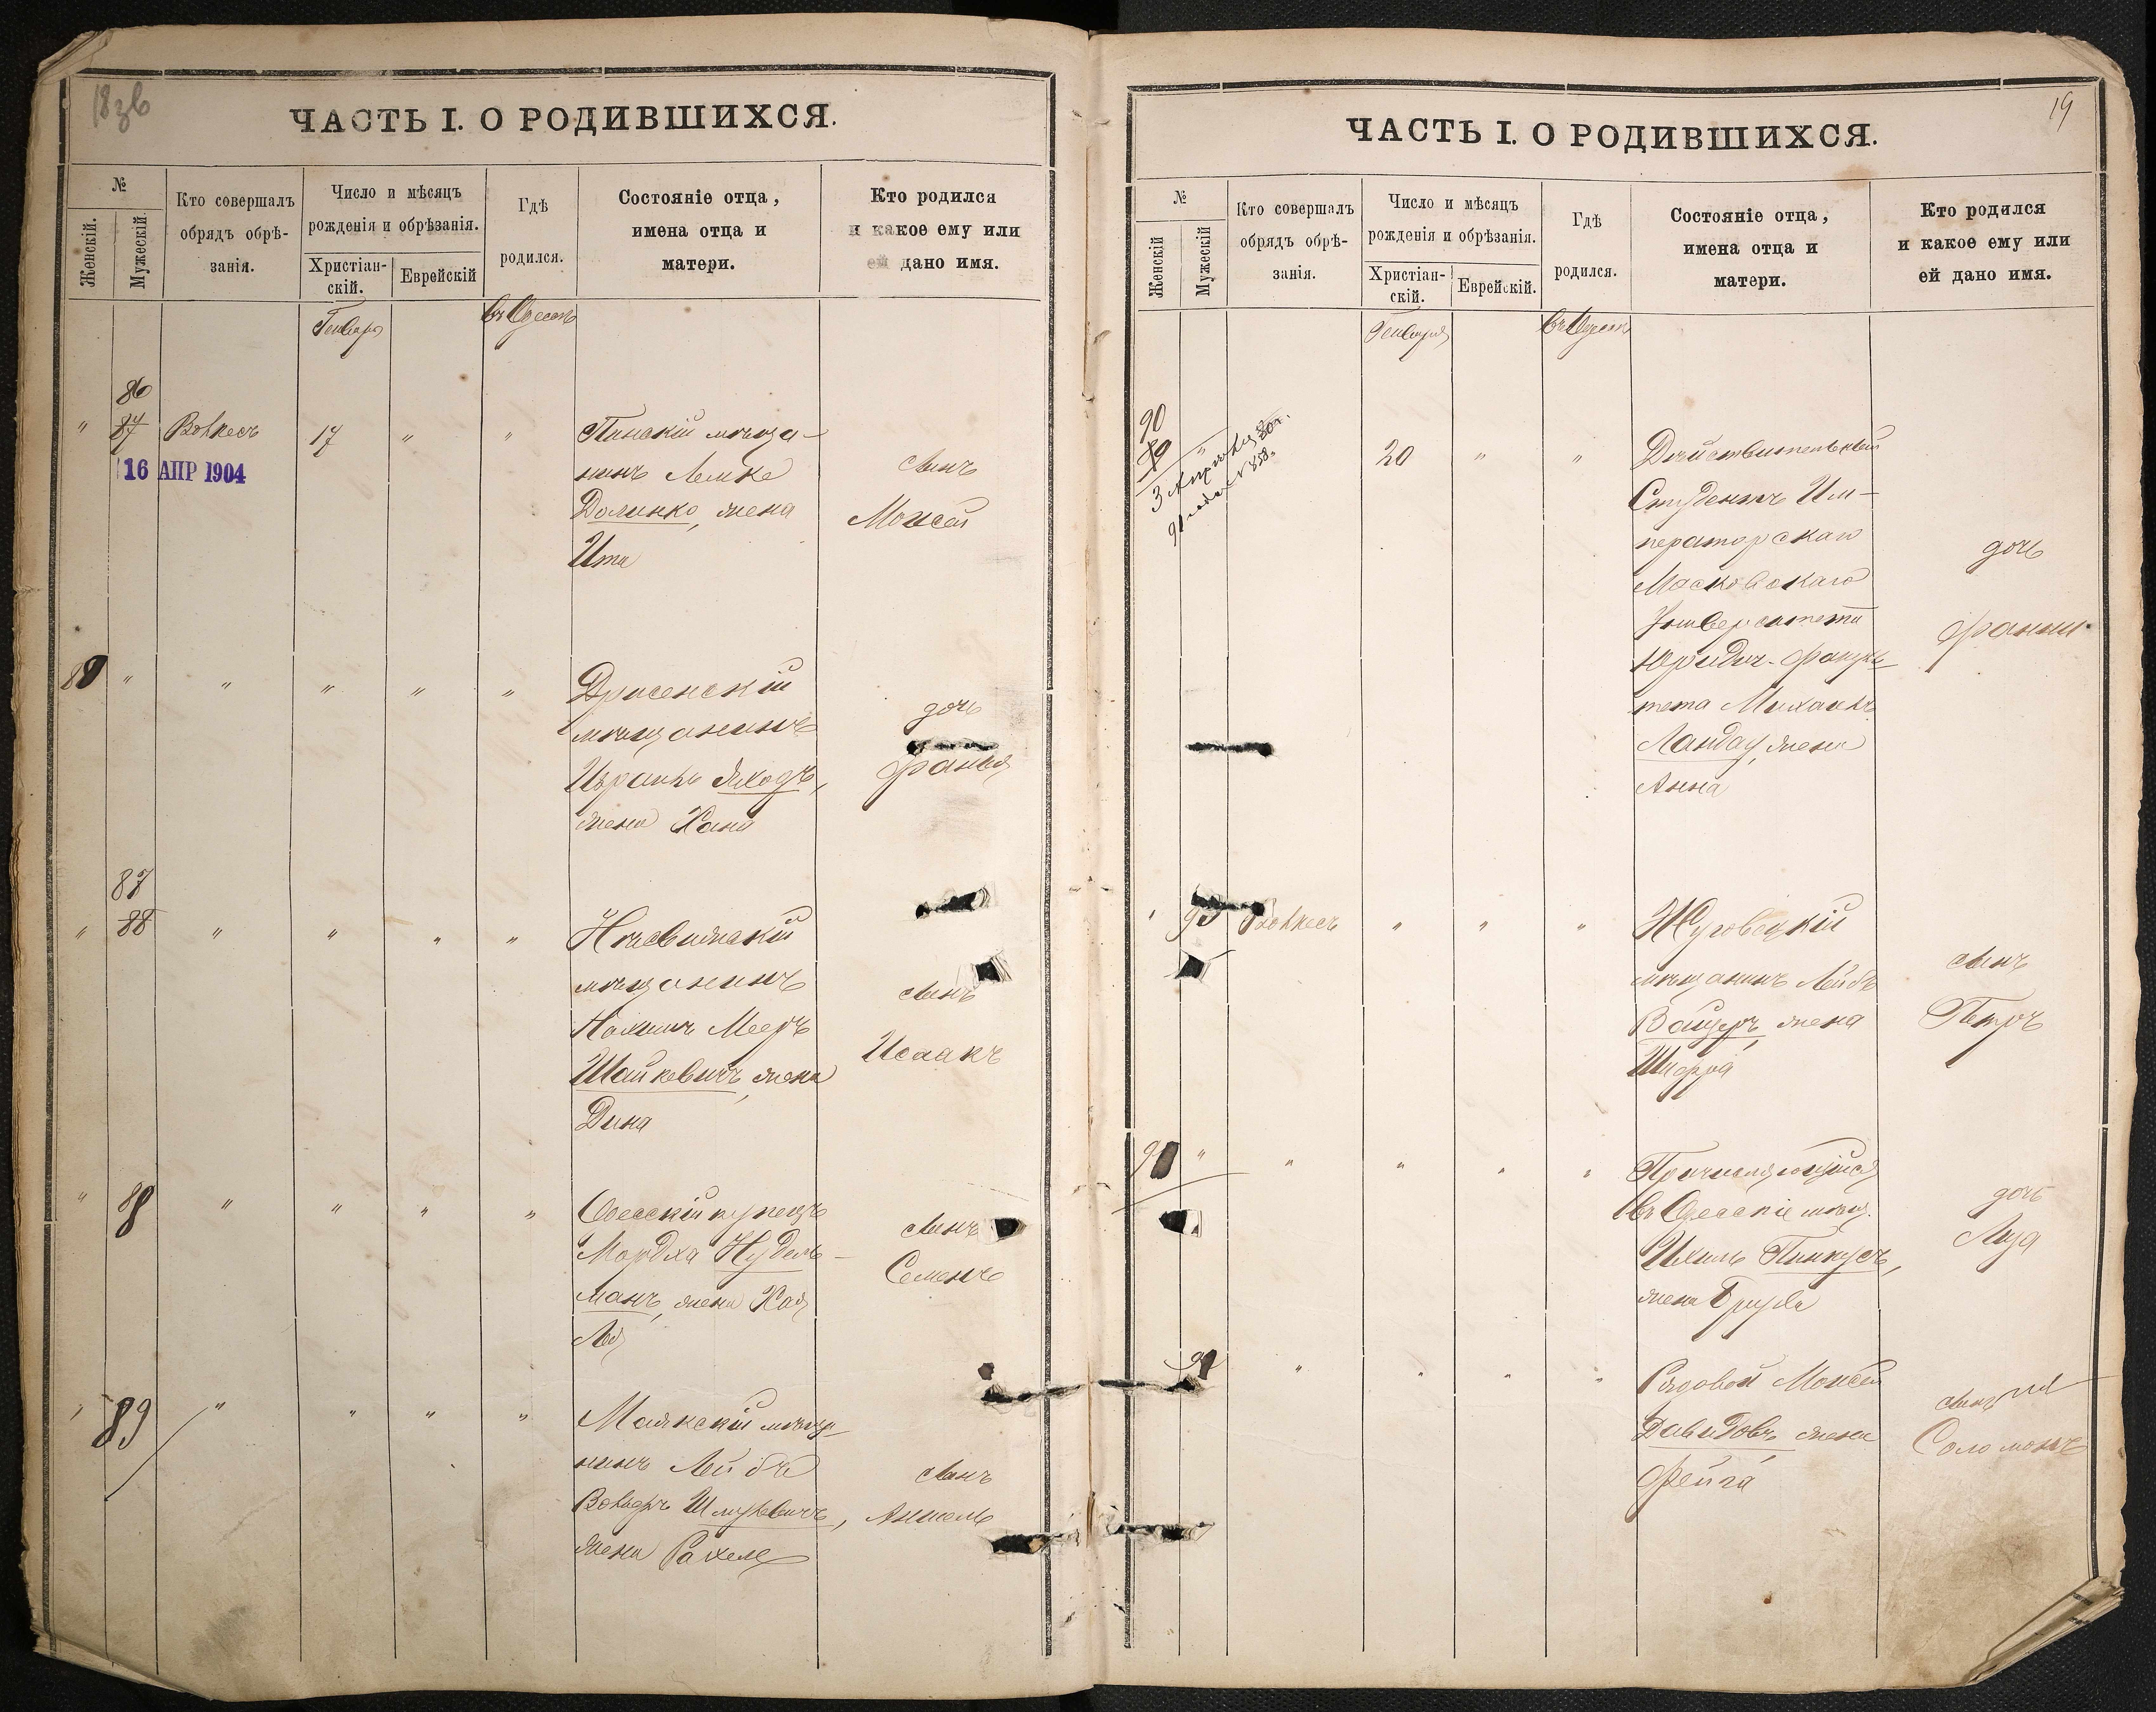 18зв
ЧАСТЬ I. О РОДИВШИХСЯ.
№
Женскій.
Мужескій
Кто совершалъ
обрядъ обрѣ-
занія.
Число и мѣсяцъ
рожденія и обрѣзанія.
Христіан-
скій.
Еврейскій
Гдѣ
родился.
Состояніе отца,
имена отца и
матери.
Кто родился
и какое ему или
ей дано имя.
Генваря
въ Одессѣ
86
" 87 17 " "
16 АПР 1904
Пинскій мѣща-
нинъ Лемке
Долинко, жена
Ита
сынъ
Моисей
88 " " " " "
Дрисенскій
мѣщанинъ
Израиль Яходъ,
жена Хана
дочь
Фаня
87
" 88 " " " "
мѣщанинъ
Мееръ
Шайкевичъ, жена
Дина
сынъ
Исаакъ
" 88 " " " "
Одесскій купецъ
Мордха Нудель-
манъ, жена Хая
Лея
сынъ
Семенъ
" 89 " " " "
Маякскій мѣща-
нинъ Лейбъ
Шмуклеичъ,
жена Рахель
сынъ
Аншель
19
ЧАСТЬ I. О РОДИВШИХСЯ.
№
Женскій
Мужескій
Кто совершалъ
обрядъ обрѣ-
занія.
Число и мѣсяцъ
рожденія и обрѣзанія.
Христіан-
скій.
Еврейскій.
Гдѣ
родился.
Состояніе отца,
имена отца и
матери.
Кто родился
и какое ему или
ей дано имя.
Генваря
въ Одессѣ
90
20 " "
Дѣйствительный
Студентъ Им-
ператорскаго
Московскаго
Университета
Юридич. Факуль-
тета Михаилъ
Ландау, жена
Анна
дочь
Фанни
" " " "
мѣщанинъ Лейбъ
Вайцеръ, жена
сынъ
Петръ
" " " " "
Причисляющійся
въ Одесскіе мѣщ.
Ихиль Пинкусъ,
жена Бруха
дочь
" " " "
Рядовой Моисей
Давидовъ, жена
Фейга
сынъ
Соломонъ